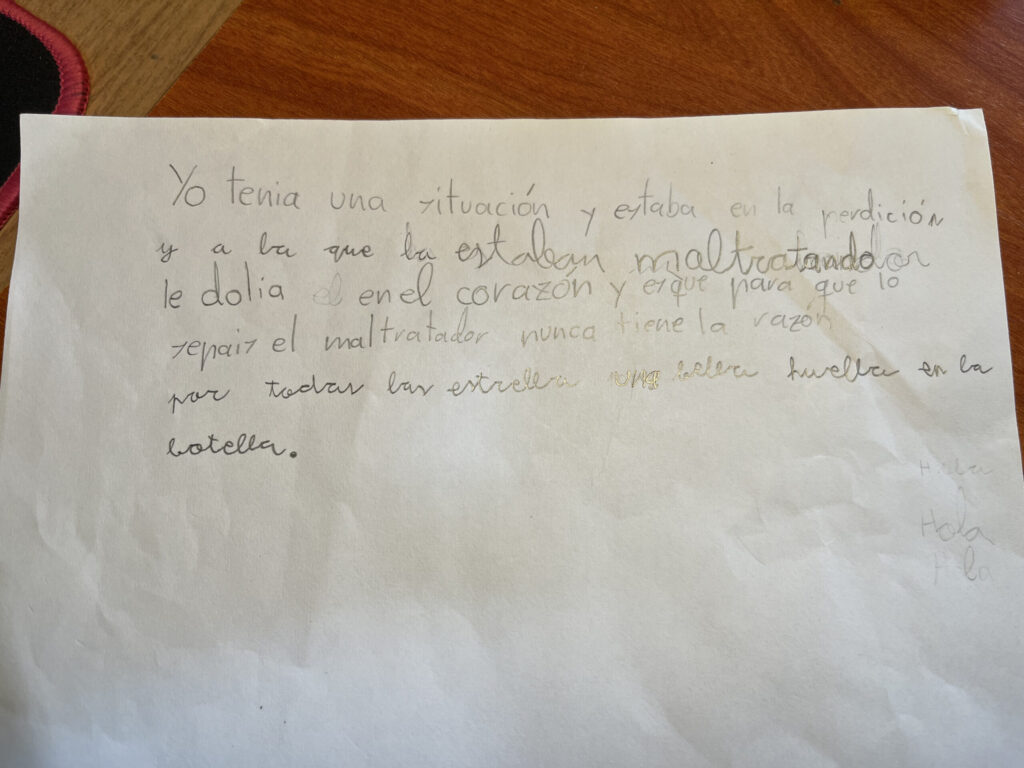 Yo tenia una situación y estaba en la perdición
y a la que la estaban maltratando
le dolia en el corazón y esque para que lo
sepais el maltratador nunca tiene la razón
por todas las estrella una bella huella en la
botella.
Hola
Hola
Hola